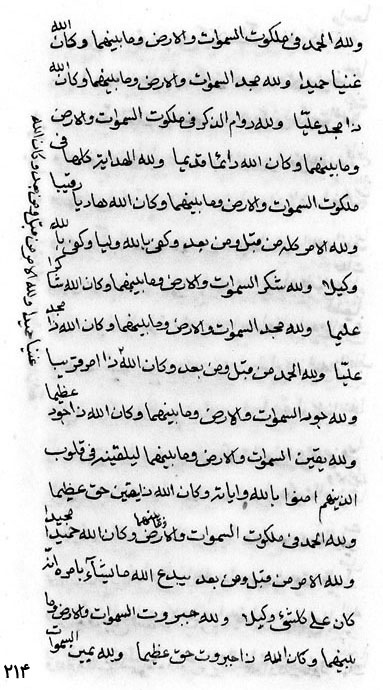 ولله الحمد فی ملکوت السموات والارض وما بینهما وکان الله
غنیا حمیدا ولله مجد السموات والارض وما بینهما وکان الله
ذا مجد علیّا ولله دوام الذکر فی ملکوت السموات والارض
وما بینهما وکان الله دائما قدیما ولله الهدایة کلها فی
ملکوت السموات والارض وما بینهما وکان الله هادیا رقیبا
ولله الامر کله من قبل ومن بعد وکفی بالله ولیا وکفی بالله
وکیلا ولله شکر السموات والارض وما بینهما وکان الله شاکرا
علیما ولله مجد السموات والارض وما بینهما وکان الله ذا مجد
علیّا ولله الحمد من قبل ومن بعد وکان الله ذا امر قریبا
ولله جود السموات والارض وما بینهما وکان الله ذا جود عظیما
ولله یقین السموات والارض وما بینهما لیلقینه فی قلوب
الذینهم امنوا بالله وایاته وکان الله ذا یقین حق عظیما
ولله الحمد فی ملکوت السموات والارض وما بینهما وکان الله حمیدا مجیدا
ولله الامر من قبل ومن بعد یبدع الله ما یشآء بامره انّه
کان علی کلشیء وکیلا ولله جبروت السموات والارض وما
بینهما وکان الله ذا جبروت حق عظیما ولله یمین السموات
غنیا حمیدا ولله الامر من قبل ومن بعد وکان الله
۲۱۴